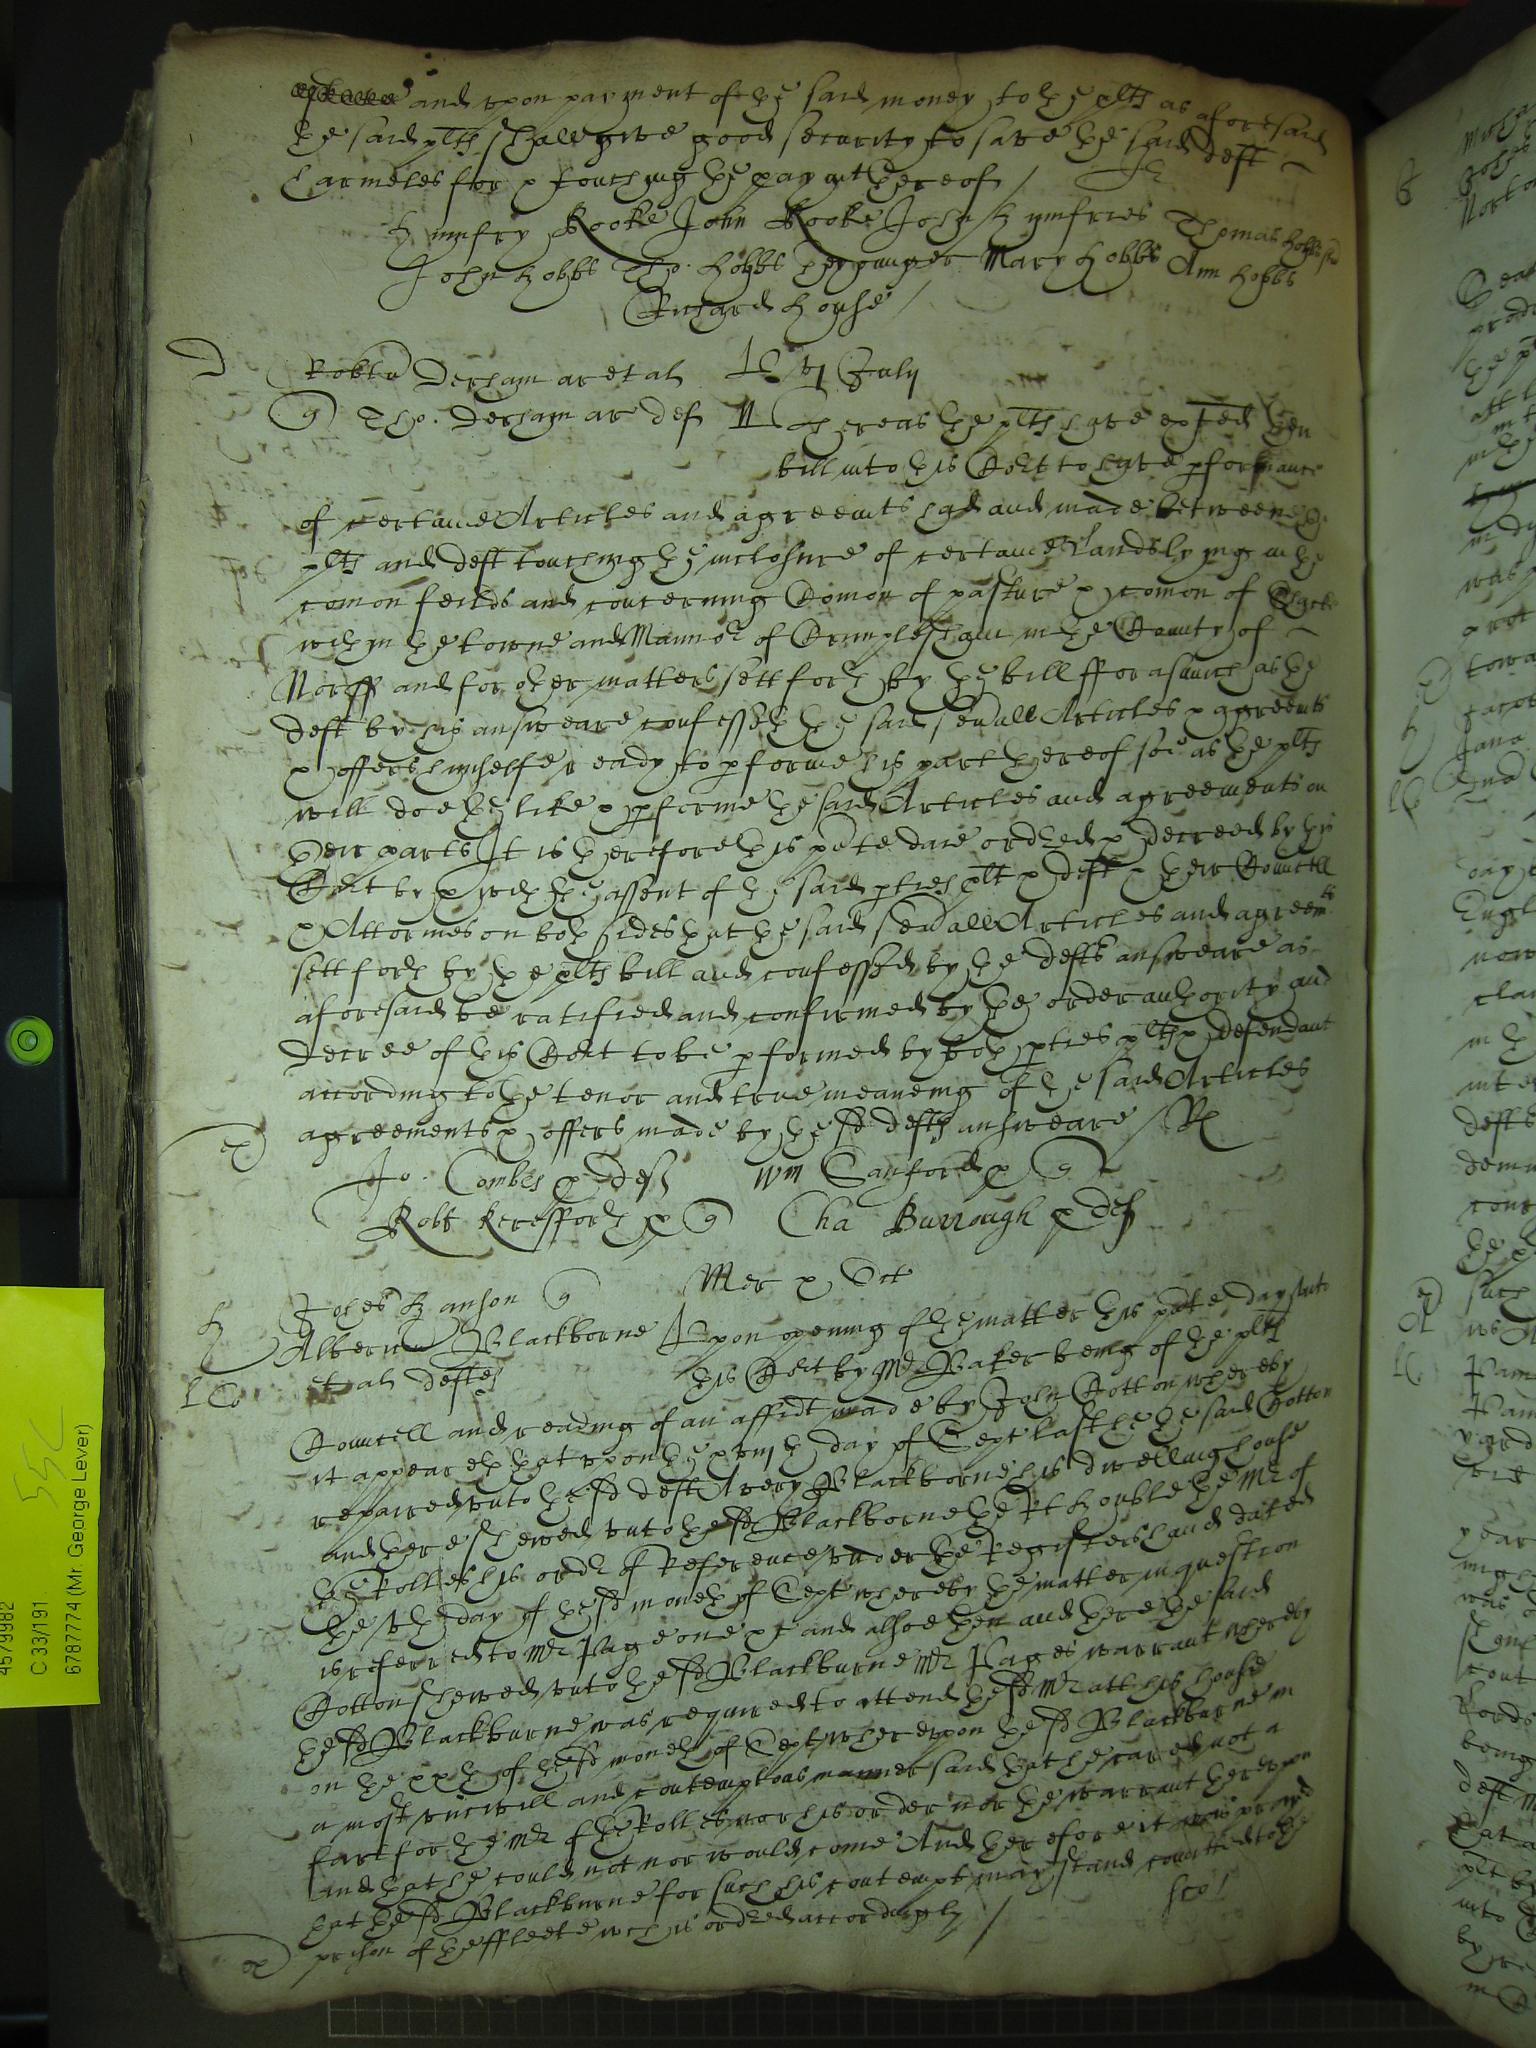 and upon payment of the said money to the plts as aforesaid
the said plts shall give good security to save the said deft
harmeles for & touching the paymt thereof /
Humfry Rooke John Rooke John Humfries Thomas Hobbs
John Hobbs Tho. Hobbs the younger Mary Hobbs Ann Hobbs
Richard House /
D Robtus Derham ar et al July
q Tho. Derham ar def Whereas the plts have exhited their
bill into this Cort to have performance
of certaine Articles and agreemts had and made betweene the
plts and deft touching the inclosure of certaine lands lying in the
comon feilds and concerning Comon of pasture & comon of
wthin the towne and Mannor of Crimplesham in the County of
Norff and for other matters sett forth by the bill fforasmuch as the
deft by his answeare confesseth the said sevall Articles & agreemts
& offers himselfe ready to performe his part thereof soe as the plts
will doe the like & performe the said Articles and agreements on
their parts It is therefore this pnte daie ordred & decreed by this
Cort by & wth the assent of the said pties plt & deft & their Councell
& Attornies on both sides that the said sevall Articles and agreemts
sett forth by the plts bill and confessed by the defts answeare as
aforesaid be ratified and confirmed by the order authority and
decree of this Cort to be performed by both pties plts & defendant
according to the tenor and true meaneing of the said Articles
agreements & offers made by the sd defts answeare /
ex
Jo. Combes p def Wm Sanford p q
Robt Keresforth p q Cha Burrough p def
Mer x Oct
H Johes Hanson q
Albericus Blackborne Upon opening of the matter this pnte day unto
et al deftes this Cort by Mr Baker being of the plts
Councell and reading of an affidt made by John Cotton whereby
it appeareth that upon the xviijth day of Sept last he the said Cotton
repaired unto the sd deft Avery Blackborne his dwelling house
and there shewed unto the sd Blackborne the Rt Honble the Mr of
the Rolles his ordr of Reference under the Registers hand dated
the vth day of the sd moneth of Sept whereby the matter in question
is referred to Mr Page one &c and alsoe then and there the said
Cotton shewed unto the sd Blackburne Mr Pages warrant whereby
the sd Blackburne was required to attend the sd Mr att his house
on the xxth of the sd moneth of Sept whereupon the sd Blackburne in
a most uncivill and contemptous manner said that he cared not a
fart for the Mr of the Rolles nor his order nor the warrant thereupon
and that he could not nor would come And therefore it was prayed
that the sd Blackburne for such his contempt may stand comitted to the
prison of the ffleete wch is ordred accordingly /
ex
4579982
C 33/191
6787774 (Mr George Lever)
55C